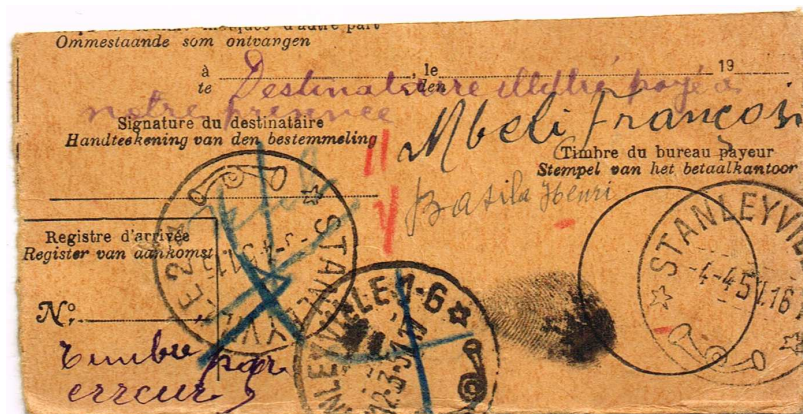 d'autre part
Ommestaande som ontvangen
à , le 19
te den
Destinataire illettré payé à
notre présence
Signature du destinataire
Handteekening van den bestemmeling
Mbeli François
Timbre du bureau payeur
Stempel van het betaalkantoor
Batila Henri
Registre d'arrivée
Register van aankomst
STANLEYVILLE 2
STANLEYVILLE
4-4-51.16
STANLEYVILLE-1-G
12-3-51
Nº
Timbre par
erreur